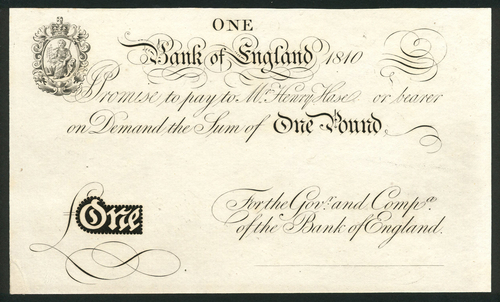 ONE
Bank of England 1810
Promise to pay to Mr. Henry Hase or bearer
on Demand the Sum of One Pound
£One
For the Govr. and Compa.
of the Bank of England.